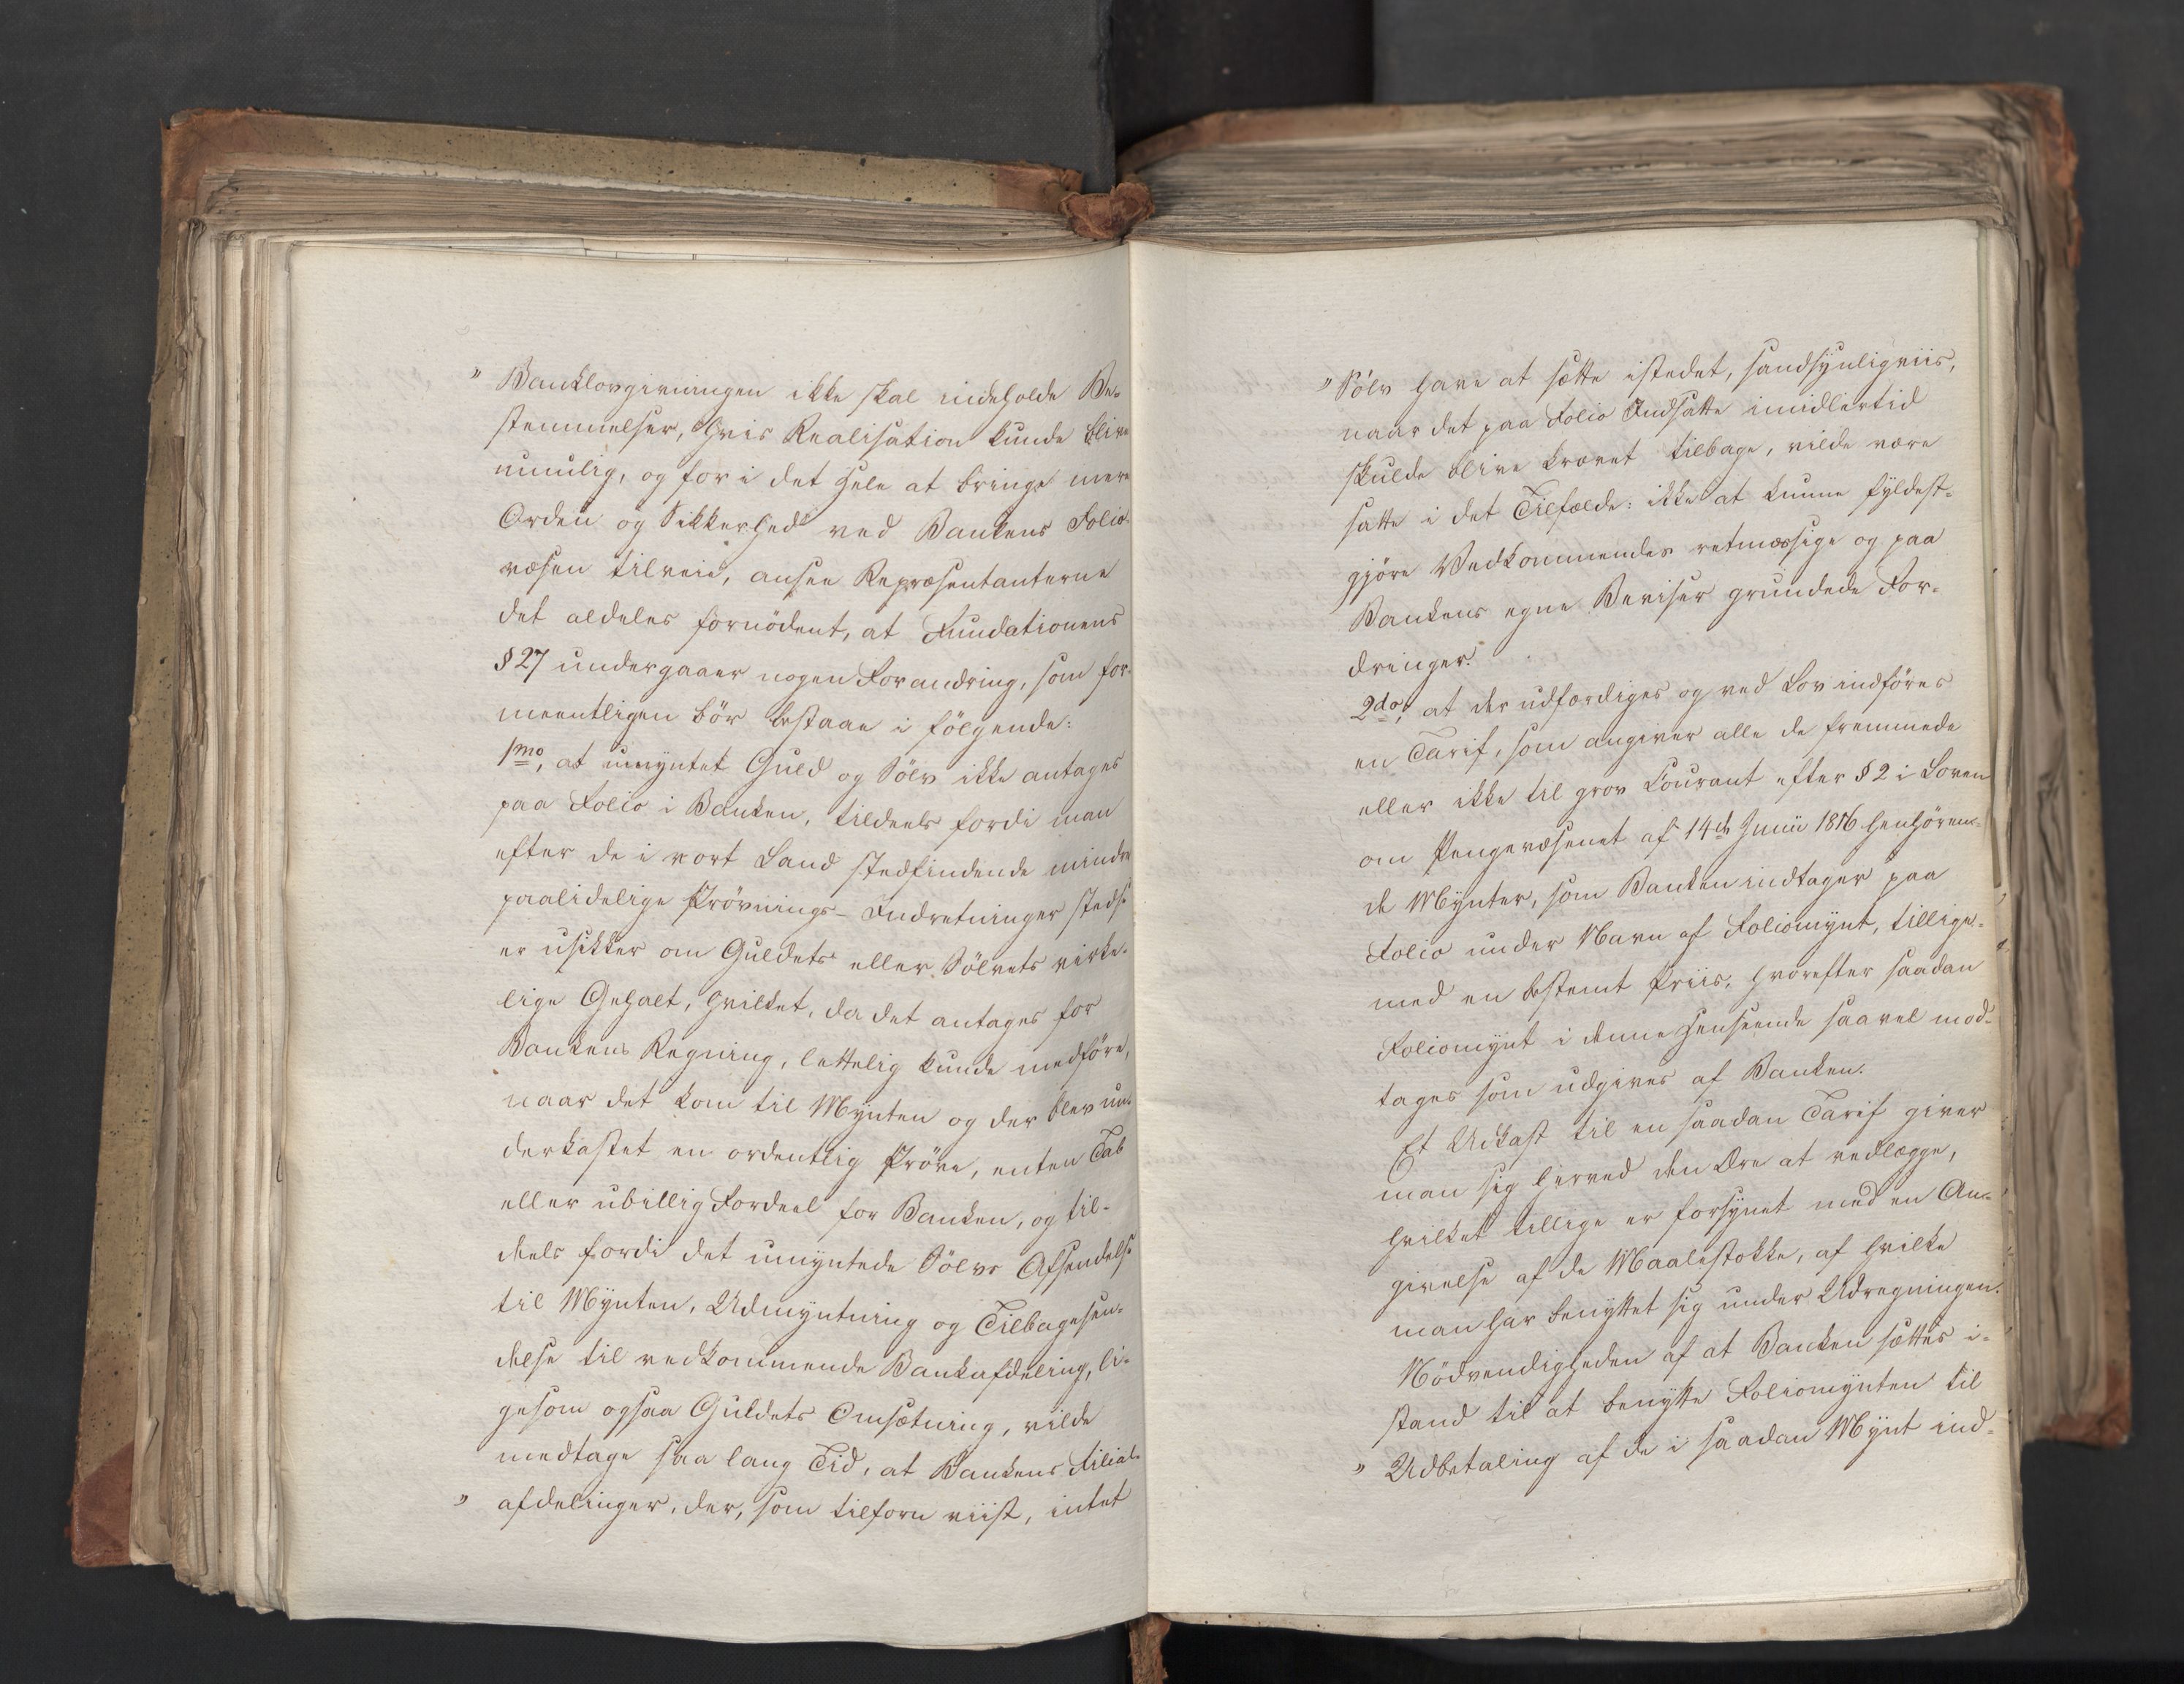 " Banklovgivningen ikke skal indeholde Be-
stemmelser, hvis Realisation kunde blive
umulig, og for i det Hele at bringe mere
Orden og Sikkerhed ved Bankens Folio-
væsen tilveie, ansee Repræsentanterne
det aldeles fornödent, at Fundationens
§ 27 undergaaer nogen Forandring, som for-
meentligen bör bestaae i fölgende:
1mo, at umyntet Guld og Sölv ikke antages
paa Folio i Banken, tildeels fordi man
efter de i vort Land stedfindende mindre
paalidelige Prövnings-Indretninger stedse
er usikker om Guldets eller Sölvets virke-
lige Gehalt, hvilket, da det antages for
Bankens Regning, lettelig kunde medföre,
naar det kom til Mynten og der blev un-
derkastet en ordentlig Pröve, enten Tab
eller ubillig Fordeel for Banken, og til-
deels fordi det umyntede Sölvs Afsendelse
til Mynten, Udmyntning og Tilbagesen-
delse til vedkommende Bankafdeling, li-
gesom ogsaa Guldets Omsætning, vilde
medtage saa lang Tid, at Bankens Filial-
" afdelinger, der, som tilforn viist, intet
" Sölv have at sætte istedet, sandsynligviis,
naar det paa Folio Indsatte imidlertid
skulde blive krævet tilbage, vilde være
satte i det Tilfælde: ikke at kunne fyldest-
gjöre Vedkommendes retmæssige og paa
Bankens egne Beviser grundede For-
dringer.
2do, at der udfærdiges og ved Lov indföres
en Tarif, som angiver alle de fremmede
eller ikke til grov Courant efter § 2 i Loven
om Pengevæsenet af 14de Junii 1816 henhören-
de Mynter, som Banken indtager paa
Folio under Navn af Foliomynt, tillige-
med en bestemt Priis, hvorefter saadan
Foliomynt i denne Henseende saavel mod-
tages som udgives af Banken.
Et Udkast til en saadan Tarif giver
man sig herved den Ære at vedlægge,
hvilket tillige er forsynet med en An-
givelse af de Maalestokke, af hvilke
man har benyttet sig under Udregningen.
Nödvendigheden af at Banken sættes i-
stand til at benytte Foliomynten til
" Udbetaling af de i saadan Mynt ind-